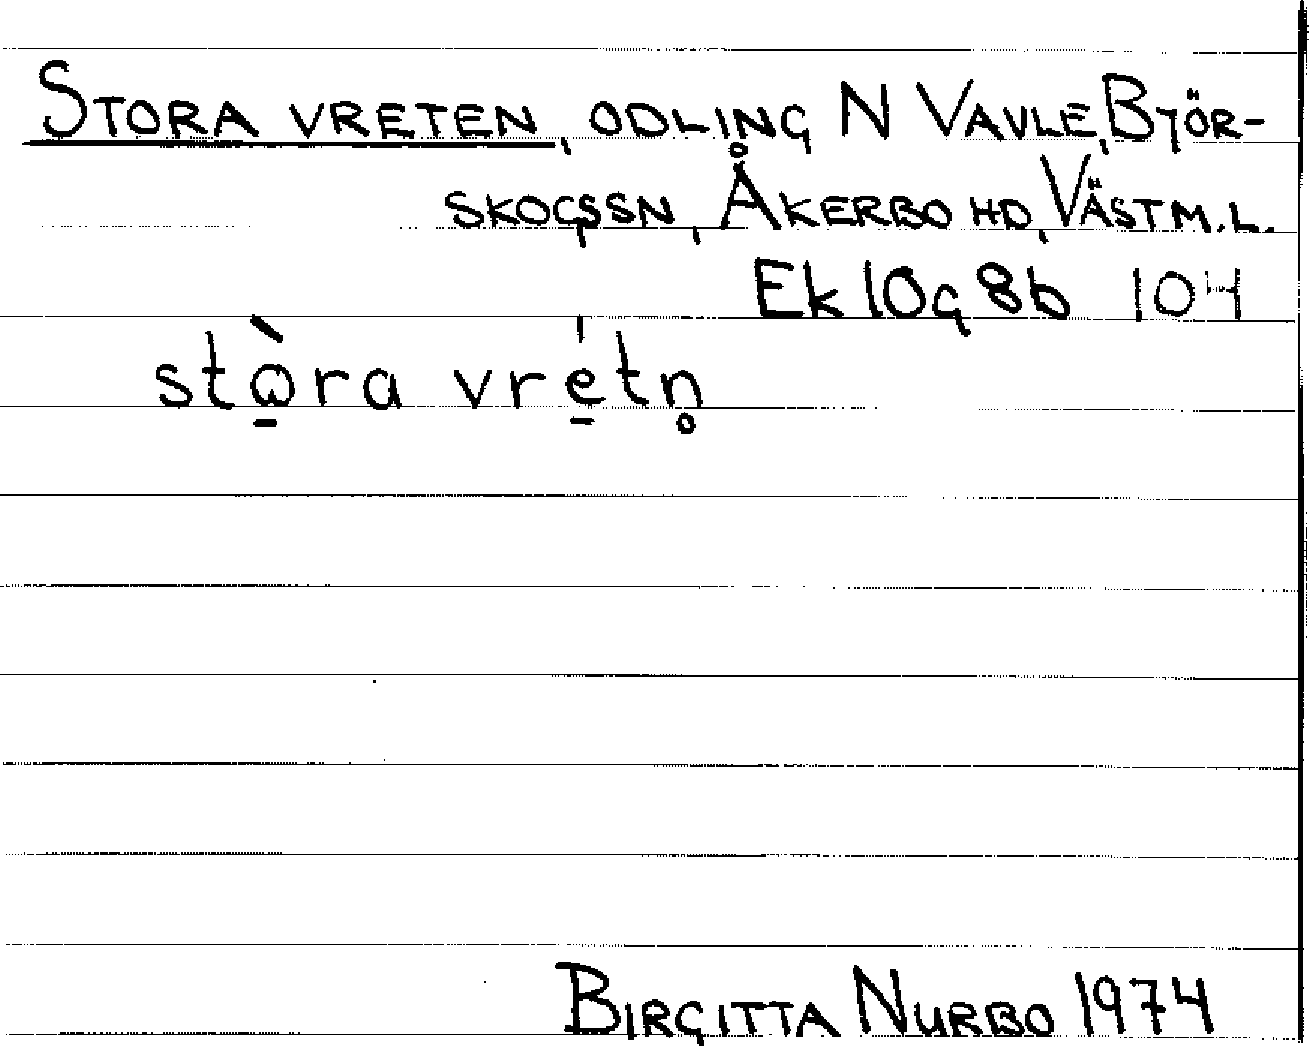 STORA VRETEN, ODLING N VAVLE, BJÖR-
SKOGSSN, ÅKERBO HD, VÄSTM.L.
Ek 10g 8b 104
stὼ̱ra vré̱tn̥
BIRGITTA NURBO 1974